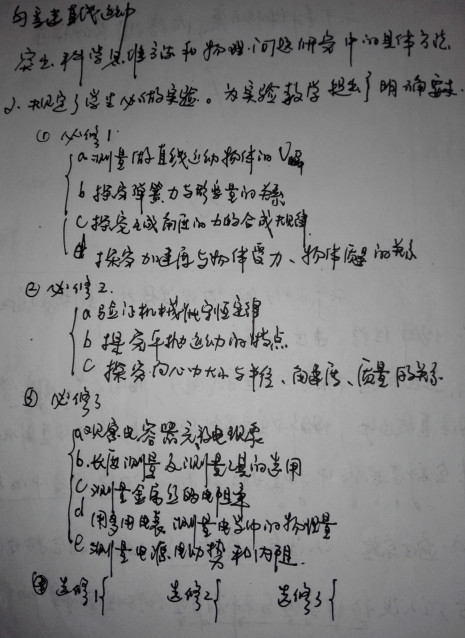 匀变速直线运动
突出科学思维方法和物理问题研究中的具体方法
2. 规定了学生必做实验。为实验教学提出了明确要求.
① 必修1.
a 测量做直线运动物体的V瞬
b 探究弹簧弹力与形变量的关系
c 探究互成角度的力的合成规律
d 探究加速度与物体受力、物体质量的关系
② 必修2.
a 验证机械能守恒定律
b 探究平抛运动的特点
c 探究向心力大小与半径、角速度、质量的关系.
③ 必修3
a 观察电容器充放电现象
b. 长度测量及测量工具的选用
c 测量金属丝的电阻率
d 用多用电表测量电学中的物理量
e 测量电源电动势和内阻.
④ 选修1{ 选修2{ 选修3{